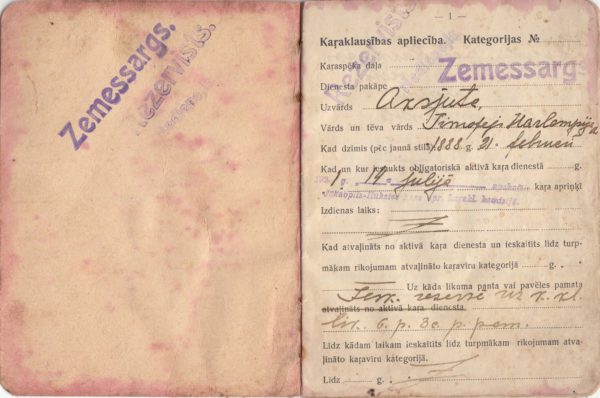 Zemessargs.
Rezervists.
— 1 —
Kaŗaklausības apliecība. Kategorijas №
Kaŗaspēka daļa
Zemessargs.
Dienesta pakāpe
Uzvārds Aksjuta,
Vārds un tēva vārds Timofejs
Kad dzimis (pēc jaunā stila) 1888 g. 21. februarī
Kad un kur iesaukts obligatoriskā aktivā kaŗa dienestā g.
1. 14 jūlijā kaŗa apriņķī
Izdienas laiks:
Kad atvaļināts no aktivā kaŗa dienesta un ieskaitīts līdz turp-
mākam rīkojumam atvaļināto kaŗavīru kategorijā g.
Uz kāda likuma panta vai pavēles pamata
atvaļināts no aktivā kaŗa dienesta
reservē uz k. kl.
lik. 6. p. 30 p. pam.
Līdz kādam laikam ieskaitīts līdz turpmākam rīkojumam atva-
ļināto kaŗavīru kategorijā.
Līdz g.